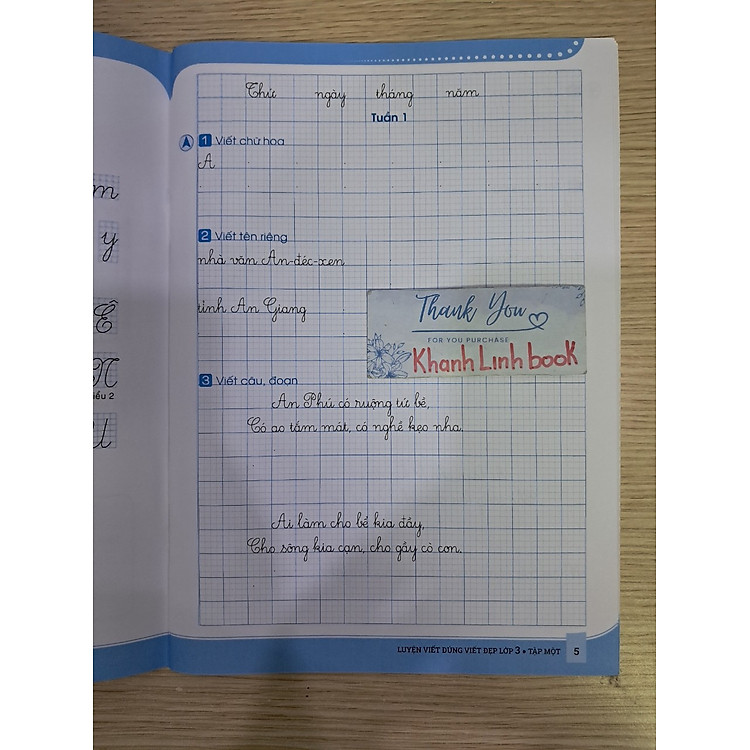 Thứ ngày tháng năm
Tuần 1
1 Viết chữ hoa
A
2 Viết tên riêng
nhà văn An-đéc-xen
tỉnh An Giang
Thank You
FOR YOU PURCHASE
Khanh Linh book
3 Viết câu, đoạn
An Phú có ruộng tứ bề,
Có ao tắm mát, có nghề kẹo nha.
Ai làm cho bể kia đầy,
Cho sông kia cạn, cho gầy cò con.
m
y
Ê
N
iểu 2
U
LUYỆN VIẾT ĐÚNG VIẾT ĐẸP LỚP 3 • TẬP MỘT 5